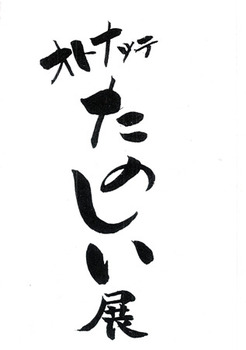 オトナッテ
たのしい展